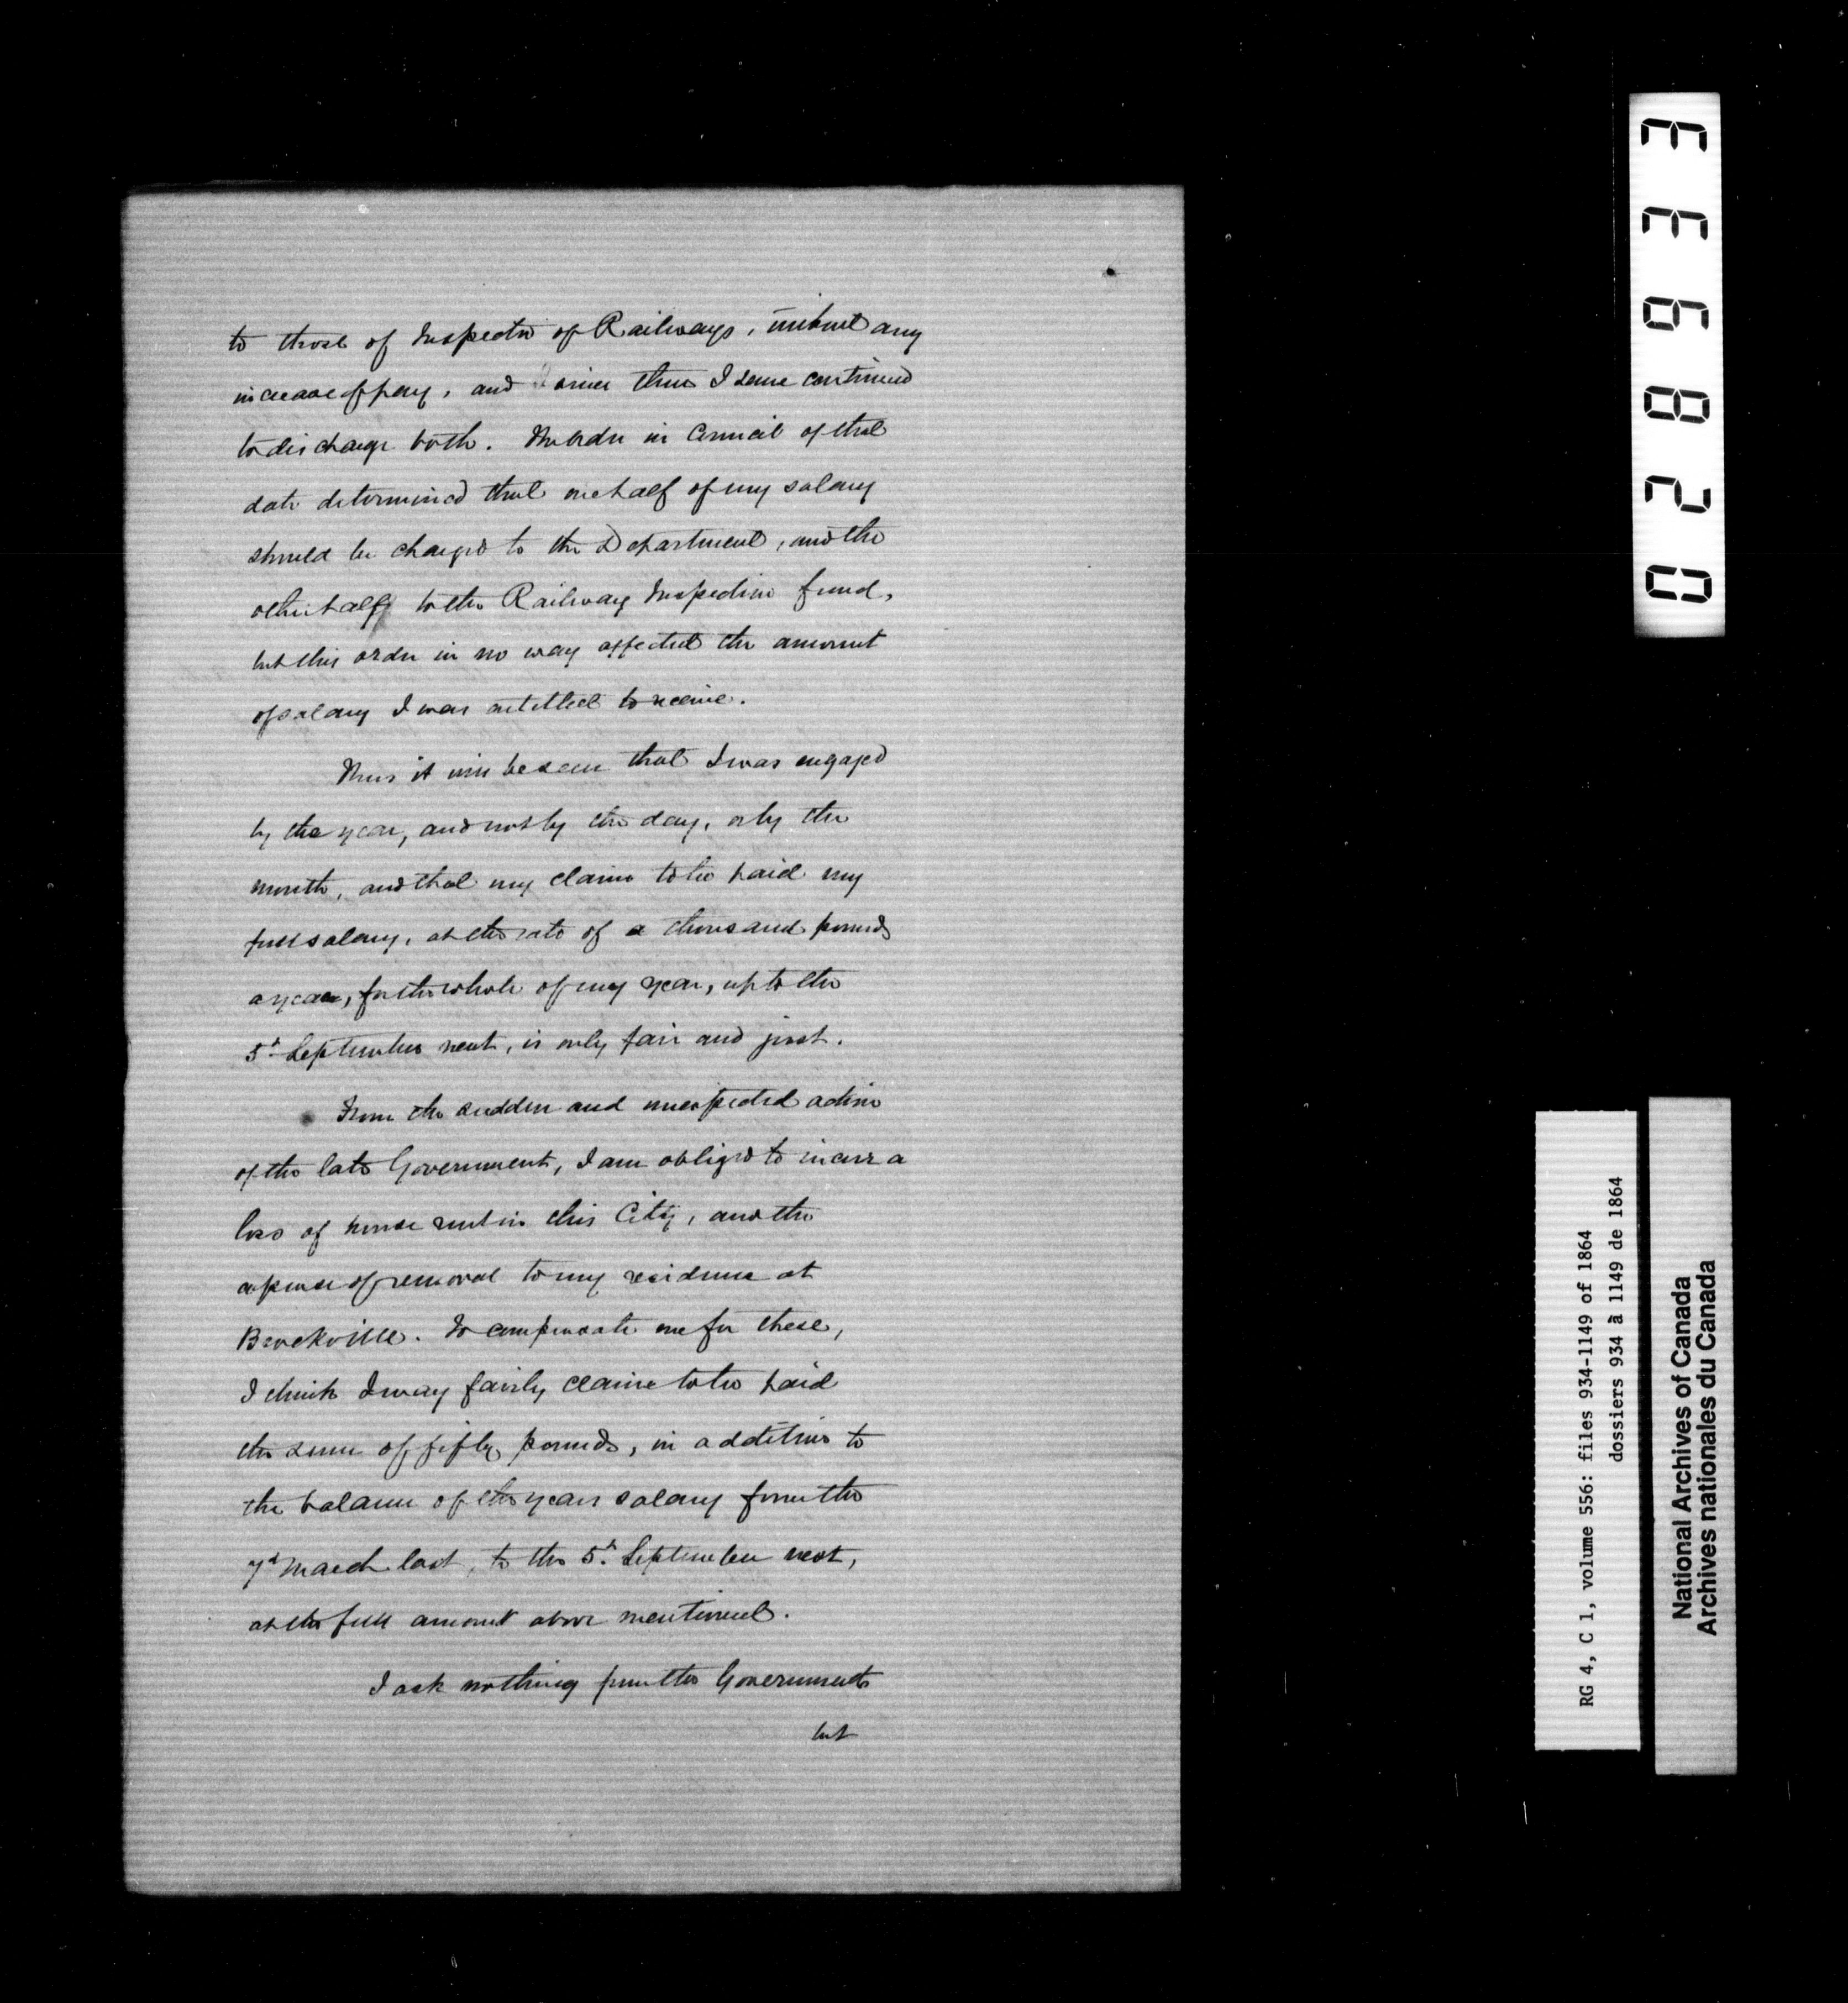 to those of Inspector of Railways, without any
increase of pay, and since then I have continued
to discharge both. The Order in Council of that
date determined that one half of my salary
should be charged to the Department, and the
other half to the Railway Inspection fund,
but this order in no way affected the amount
of salary I was entitled to receive.
Thus it will be seen that I was engaged
by the year, and not by the day, or by the
month, and that my claim to be paid my
full salary, at the rate of a thousand pounds
a year, for the whole of my year, up to the
5th September next, is only fair and just.
From the sudden and unexpected action
of the late Government, I am obliged to incur a
loss of house rent in this City, and the
expense of removal to my residence at
Brockville. To compensate me for these,
I think I may fairly claim to be paid
the sum of fifty pounds, in addition to
the balance of the years salary from the
7th March last, to the 5th September next,
at the full amount above mentioned.
I ask nothing from the Government
but
336820
RG 4, C 1, volume 556: files 934-1149 of 1864
dossiers 934 à 1149 de 1864
National Archives of Canada
Archives nationales du Canada